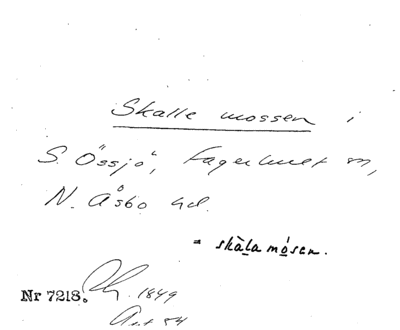 Skalle mossen i
S. Össjö, Fagerhult sn,
N. Åsbo hd.
= skàlamósen.
Nr 7218. 1849
54